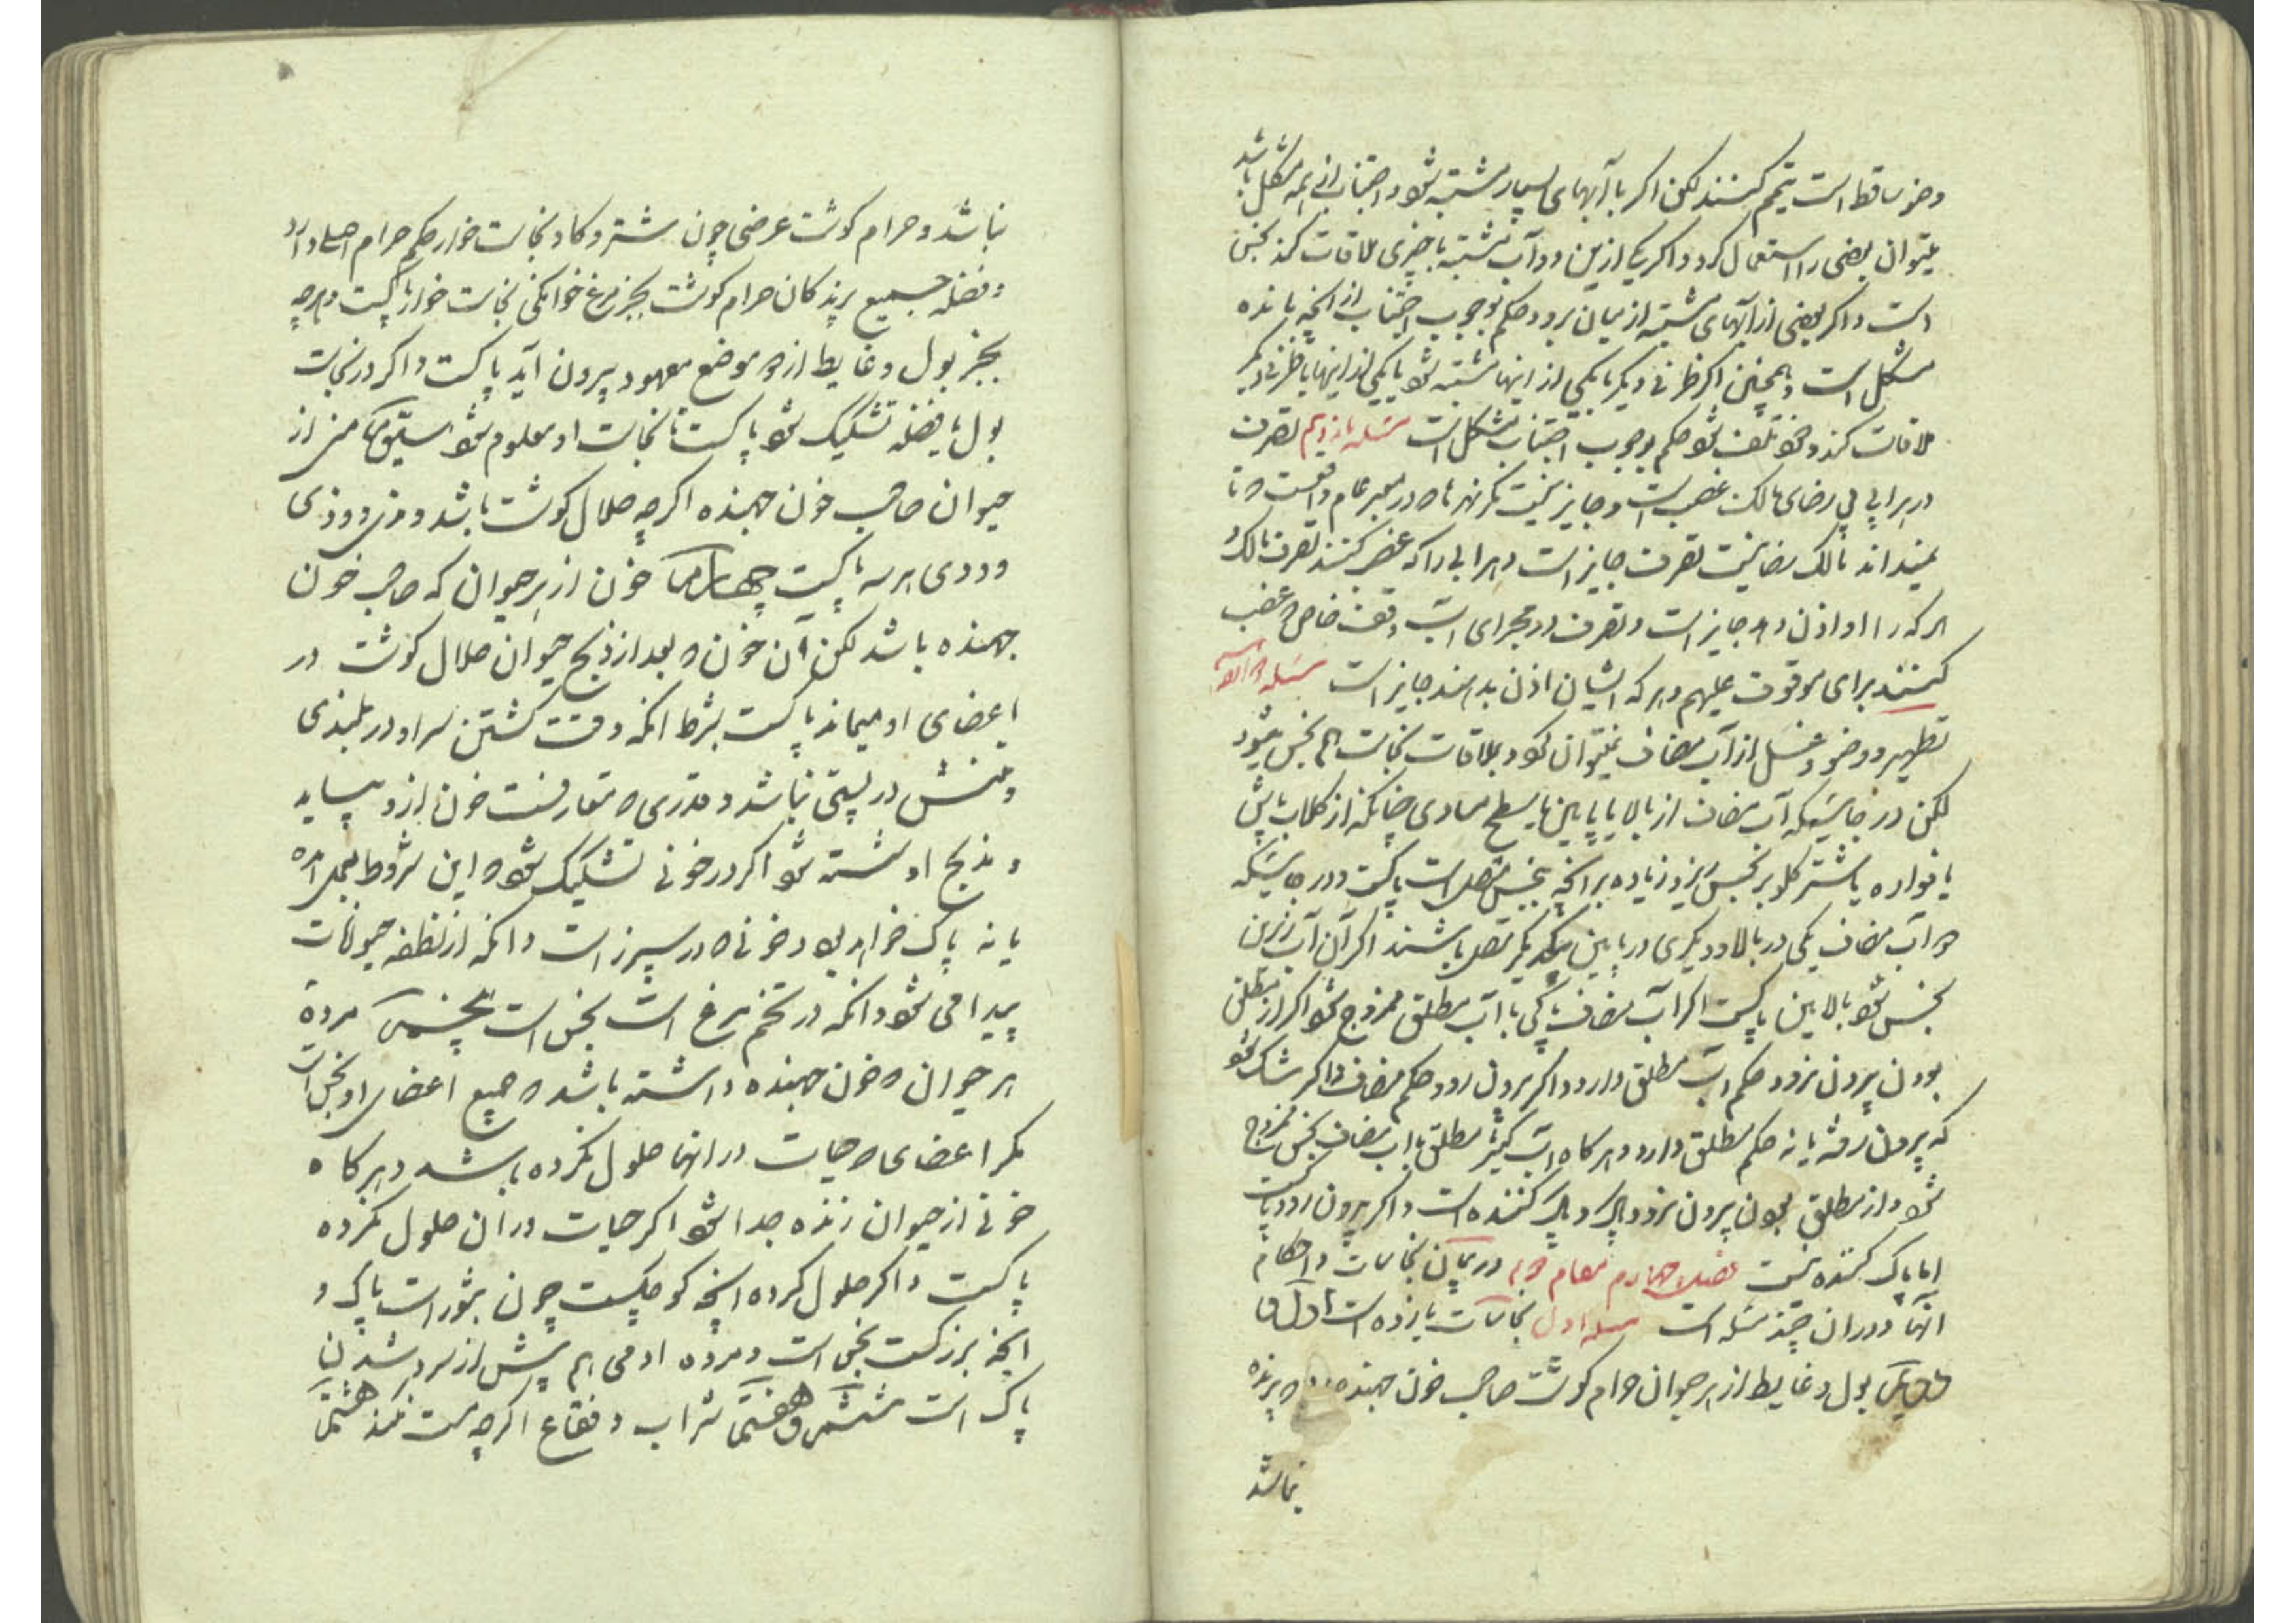 وضو ساقط است تیمم کنند لکن اگر با آبهای بسیار مشتبه شود و اجتناب از همه مشکل باشد
میتوان بعضی را استعمال کرد و اگر یکی ازین دو آب مشتبه با چیزی ملاقات کند نجس
است و اگر بعضی از آبهای مشتبه از میان برود حکم بوجوب اجتناب از آنچه مانده
مشکل است و همچنین اگر ظرفی دیگر با یکی از اینها مشتبه شود یا یکی از اینها با ظرفی دیگر
ملاقات کند و خود تلف شود حکم بوجوب اجتناب مشکل است مسئله یازدهم تصرف
در هر آبی بی رضای مالک غصب است و جایز نیست مگر نهر ها که در معبر عام واقعست که تا
نمیداند مالک راضی نیست تصرف جایز است و هر آبی را که غصب کنند تصرف مالک و
هر که را او اذن دهد جایز است و تصرف در مجرای آب وقف خاص که غصب
کنند برای موقوف علیهم و هر که ایشان اذن بدهند جایز است مسئله
تطهیر و وضو و غسل از آب مضاف نمیتوان کرد و بملاقات نجاست هم نجس میشود
لکن در جائیکه آب مضاف از بالا یا پایین یا بسطح مساوی چنانکه از گلاب پاش
یا فواره یا شتر گلو بر نجس ریزد زیاده بر آنچه بنجس متصل است پاکست و در جائیکه
دو آب مضاف یکی در بالا و دیگری در پایین بیکدیگر متصل باشند اگر آن آب زیرین
نجس شود بالایین پاکست اگر آب مضاف پاکی با آب مطلق ممزوج شود اگر از مطلق
بودن بیرون نرود حکم آب مطلق دارد و اگر بیرون رود حکم مضاف و اگر شک شود
که بیرون رفته یا نه حکم مطلق دارد و هر گاه آب کثیر مطلق با آب مضاف نجس ممزوج
شود و از مطلق بودن بیرون نرود پاک و پاک کننده است و اگر بیرون رود پاکست
اما پاک کننده نیست فصل چهارم مقام دوم در بیان نجاسات و احکام
آنها و در آن چند مسئله است مسئله اول نجاسات یازده است اول و
دویم بول و غایط از هر حیوان حرام گوشت صاحب خون جهنده که پرنده
نباشد
نباشد و حرام گوشت عرضی چون شتر و گاو نجاست خوار حکم حرام اصلی دارد
و فضله جمیع پرندگان حرام گوشت بجز مرغ خوانگی نجاست خوار پاکست و هر چه
بجز بول و غایط از دو موضع معهود بیرون آید پاکست و اگر در نجاست
بول یا فضله تشکیک شود پاکست تا نجاست او معلوم شود سیّوم منی از
حیوان صاحب خون جهنده اگر چه حلال گوشت باشد و مذی و وذی
و ودی هر سه پاکیست چهارم خون از هر حیوان که صاحب خون
جهنده باشد لکن آن خون که بعد از ذبح حیوان حلال گوشت در
اعضای او میماند پاکست بشرط آنکه وقت کشتن سر او در بلندی
و تنش در پستی نباشد و قدری که متعارفست خون ازو بیاید
و مذبح او شسته شود اگر در خونی تشکیک شود که این شروط بعمل آمده
یا نه پاک خواهد بود و خونی که در سپرز است و آنکه از نطفه حیوانات
پیدا می شود و آنکه در تخم مرغ است نجس است پنجم مرده
هر حیوان که خون جهنده داشته باشد که جمیع اعضای او نجس است
مگر اعضای که حیات در آنها حلول نکرده باشد و هر گاه
جزئی از حیوان زنده جدا شود اگر حیات در آن حلول نکرده
پاکست و اگر حلول کرده آنچه کوچکست چون بثور است پاک و
آنچه بزرگست نجس است و مرده آدمی هم پیش از سرد شدن
پاک است ششم و هفتم شراب و فقاع اگر چه مست نکند هشتم